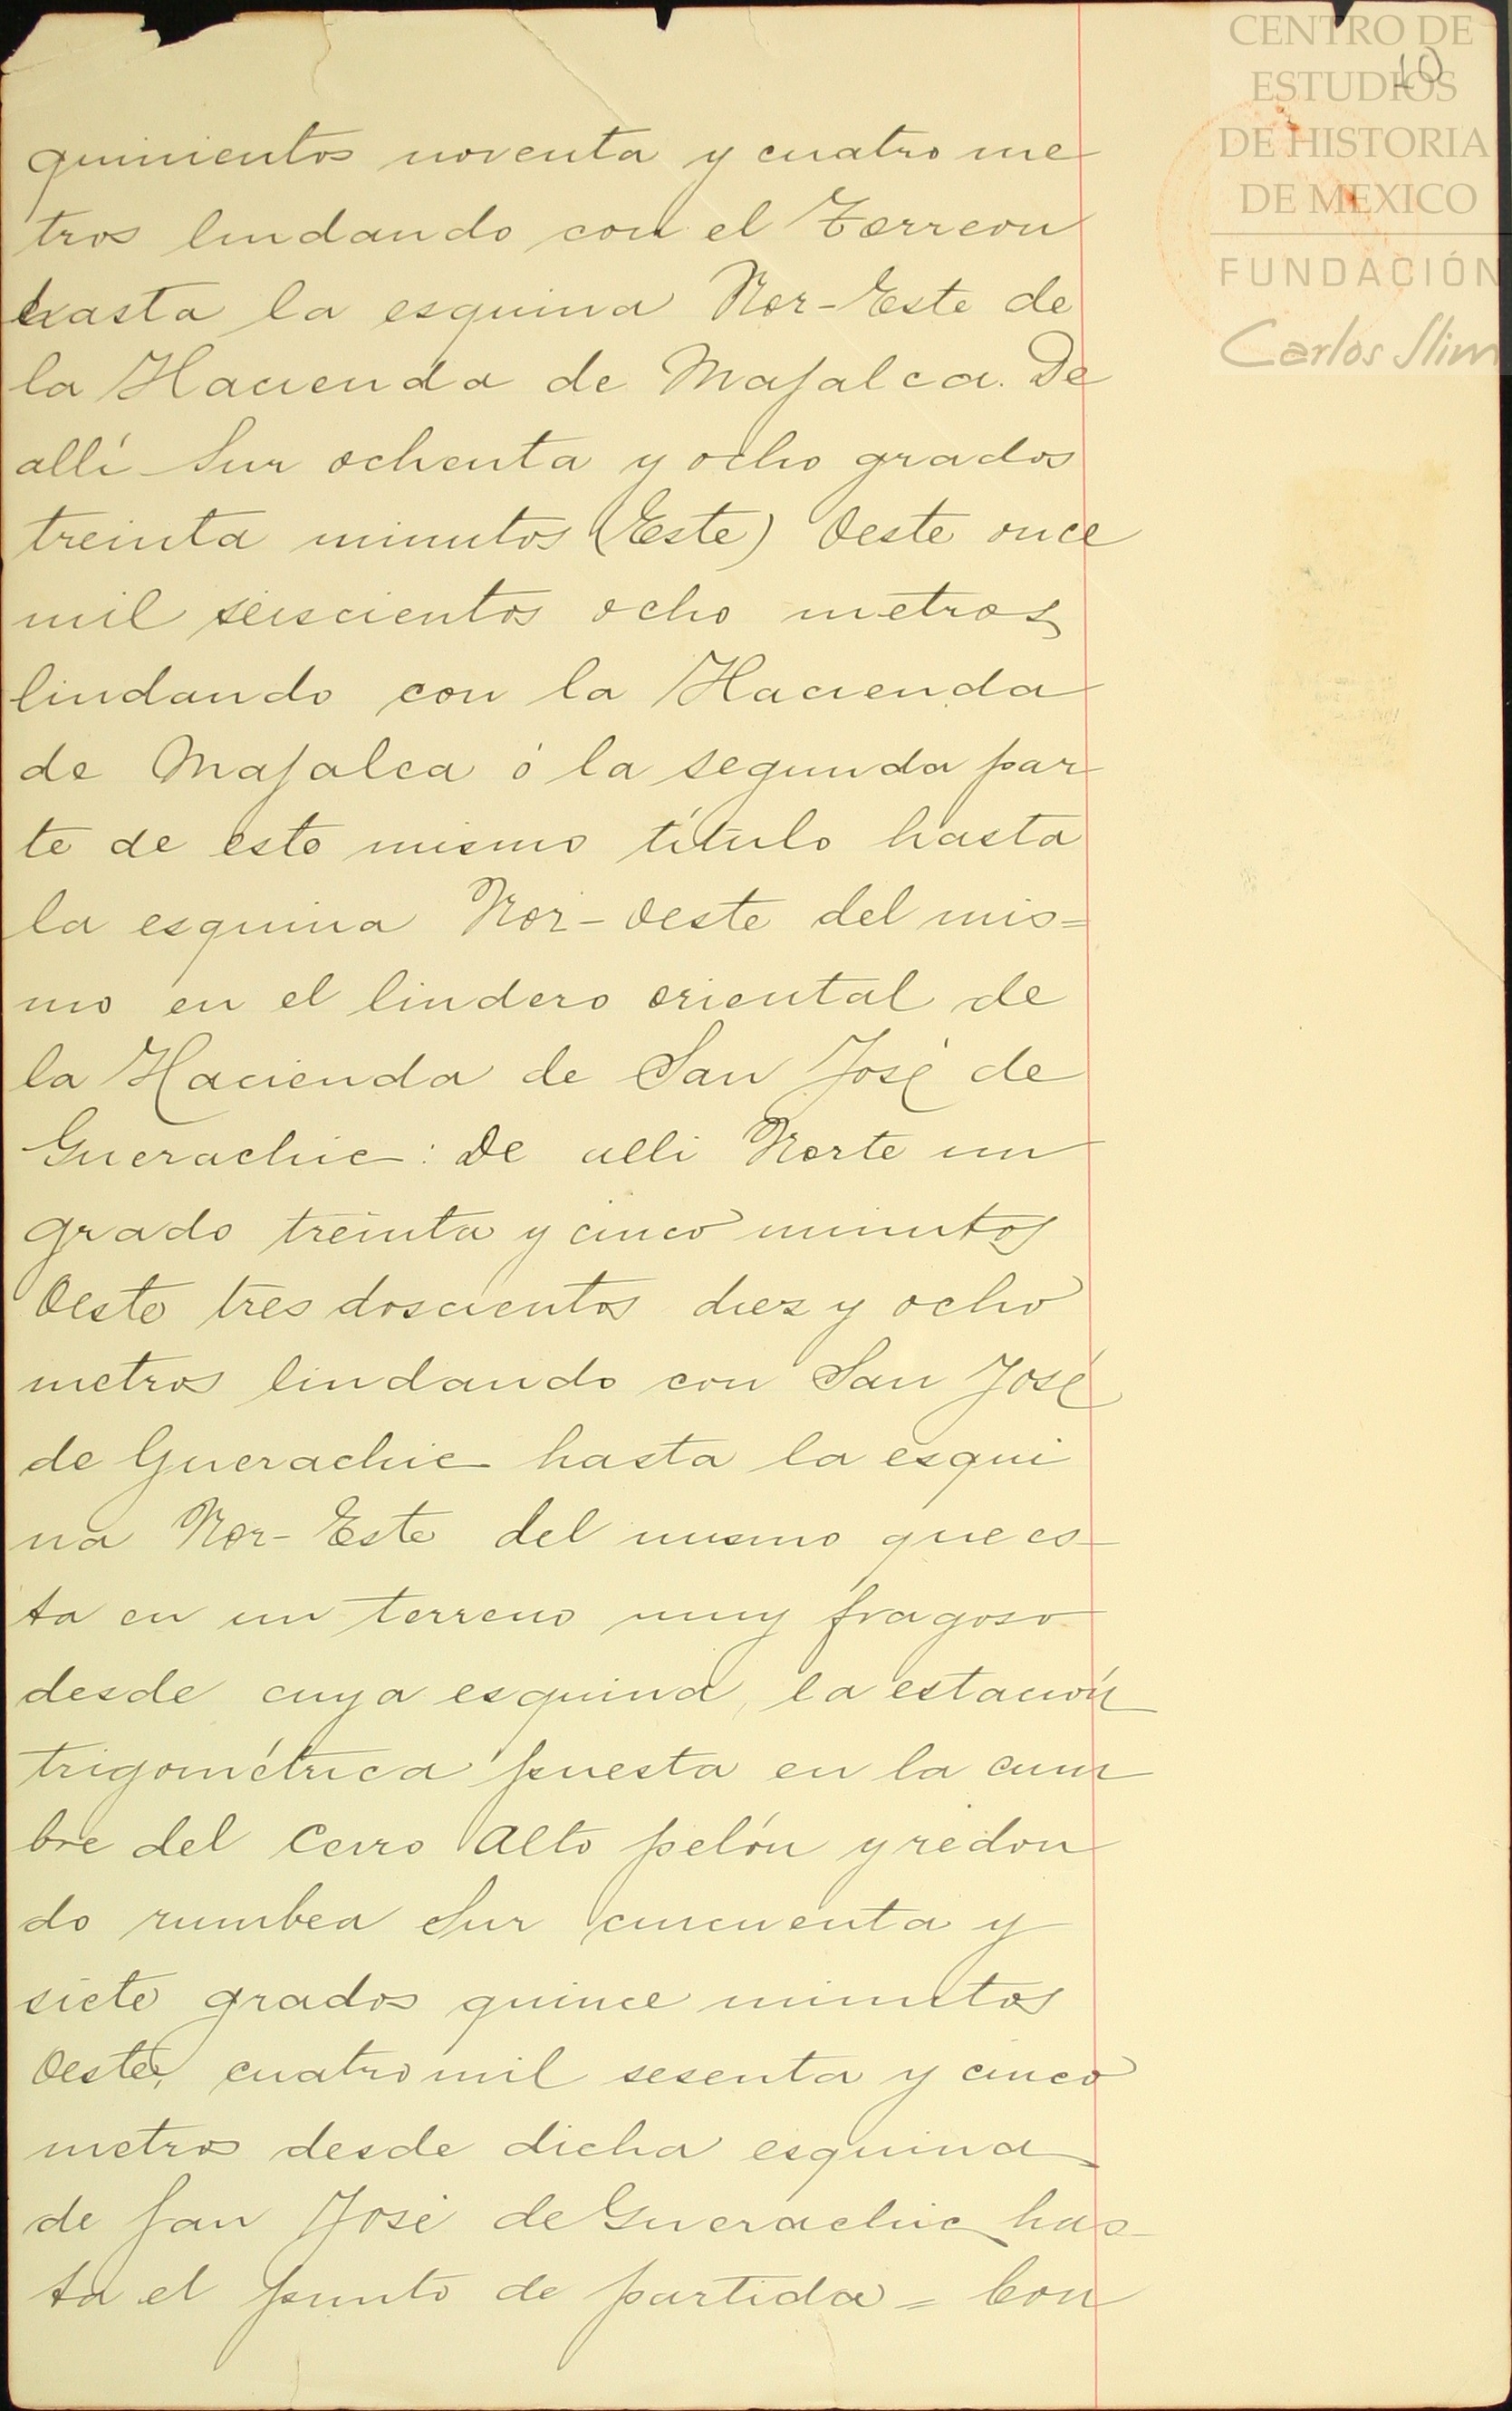 CENTRO DE
ESTUDIOS
DE HISTORIA
DE MEXICO
FUNDACIÓN
Carlos Slim
10
quinientos noventa y cuatro me
tros lindando con el Torreon
hasta la esquina Nor-Este de
la Hacienda de Majalca. De
allí Sur ochenta y ocho grados
treinta minutos (Este) Oeste once
mil seiscientos ocho metros
lindando con la Hacienda
de Majalca ó la segunda par
te de este mismo título hasta
la esquina Nor-Oeste del mis=
mo en el lindero oriental de
la Hacienda de San José de
Guerachic: De alli Norte un
grado treinta y cinco minutos
Oeste tres doscientos diez y ocho
metros lindando con San José
de Guerachic hasta la esqui
na Nor-Este del mismo que es-
ta en un terreno muy fragoso
desde cuya esquina, la estación
trigométrica puesta en la cum
bre del Cerro Alto pelón y redon
do rumbea Sur cincuenta y
siete grados quince minutos
Oeste, cuatro mil sesenta y cinco
metros desde dicha esquina
de San José de Guerachic has-
ta el punto de partida = Con